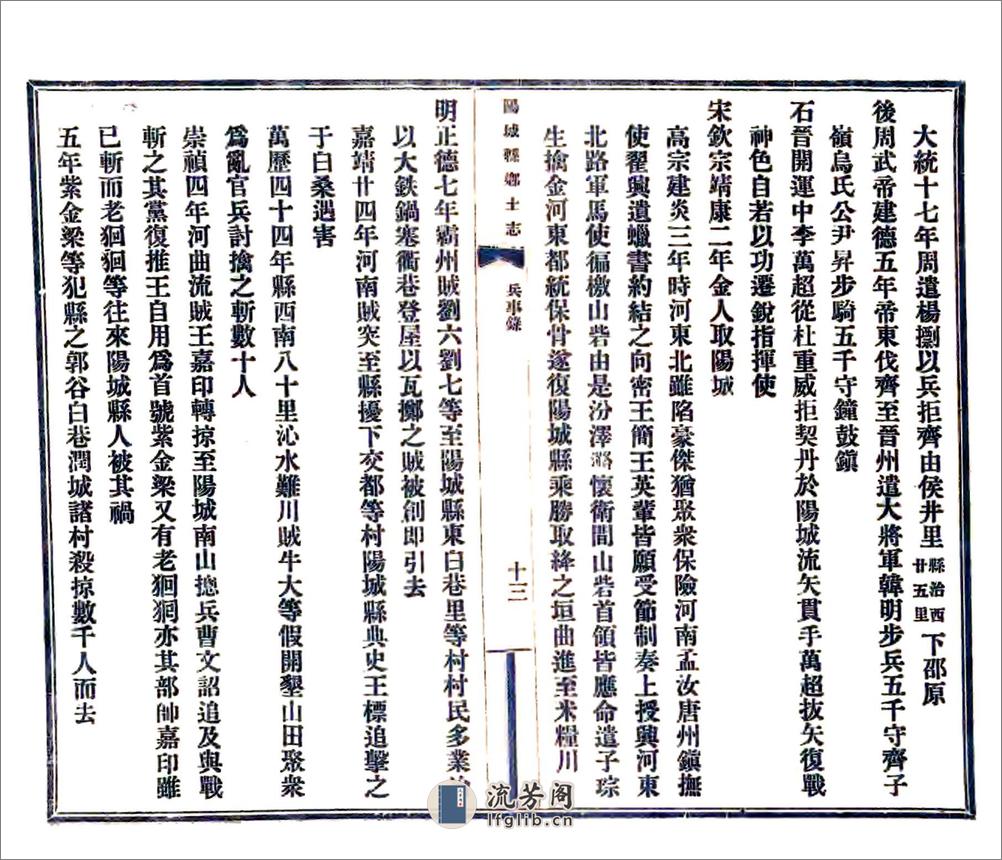 大統十七年周遣楊㯹以兵拒齊由侯井里縣治西廿五里下邵原
後周武帝建德五年帝東伐齊至晉州遣大將軍韓明步兵五千守齊子
嶺烏氏公尹昇步騎五千守鐘鼓鎮
石晉開運中李萬超從杜重威拒契丹於陽城流矢貫手萬超拔矢復戰
神色自若以功遷銳指揮使
宋欽宗靖康二年金人取陽城
高宗建炎三年時河東北雖陷豪傑猶聚衆保險河南孟汝唐州鎮撫
使翟興遺蠟書約結之向密王簡王英輩皆願受節制奏上授興河東
北路軍馬使徧檄山砦由是汾澤潞懷衛間山砦首領皆應命遣子琮
生擒金河東都統保骨遂復陽城縣乘勝取絳之垣曲進至米糧川
陽城縣鄉土志
兵事錄
十三
明正德七年霸州賊劉六劉七等至陽城縣東白巷里等村村民多業
以大鉄鍋塞衢巷登屋以瓦擲之賊被創即引去
嘉靖廿四年河南賊突至縣擾下交都等村陽城縣典史王標追擊之
于白桑遇害
萬歷四十四年縣西南八十里沁水難川賊牛大等假開墾山田聚衆
爲亂官兵討擒之斬數十人
崇禎四年河曲流賊王嘉印轉掠至陽城南山摠兵曹文詔追及與戰
斬之其黨復推王自用爲首號紫金梁又有老狪狪亦其部帥嘉印雖
已斬而老狪狪等往來陽城縣人被其禍
五年紫金梁等犯縣之郭谷白巷潤城諸村殺掠數千人而去
流芳阁
lfglib.cn